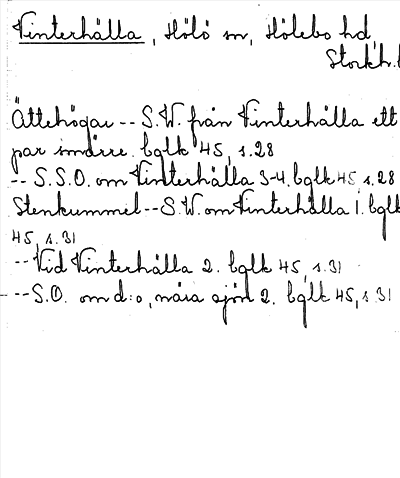 Vinterhålla, Hölö sn, Hölebo hd,
Stockh.l
Ättehögar -- S.W. från Vinterhålla ett
par smärre. bglk 45, s. 28
-- S.S.O. om Vinterhålla 3-4. bglk 45, s. 28
Stenkummel -- S.W. om Vinterhålla 1. bglk
45, s. 31
-- Vid Vinterhålla 2. bglk 45, s. 31
-- S.O. om d:o, nära sjön 2. bglk 45, s. 31